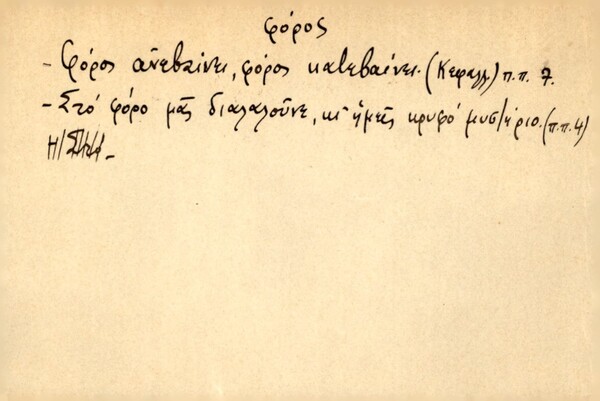 φόρος
- Φόρος ἀνεβαίνει, φόρος κατεβαίνει. (Κεφαλλ) π.π. 7.
- Στό φόρο μᾶς διαλαλοῦνε, κι' ἡμεῖς κρυφό μυστήριο. (π.π. 4)